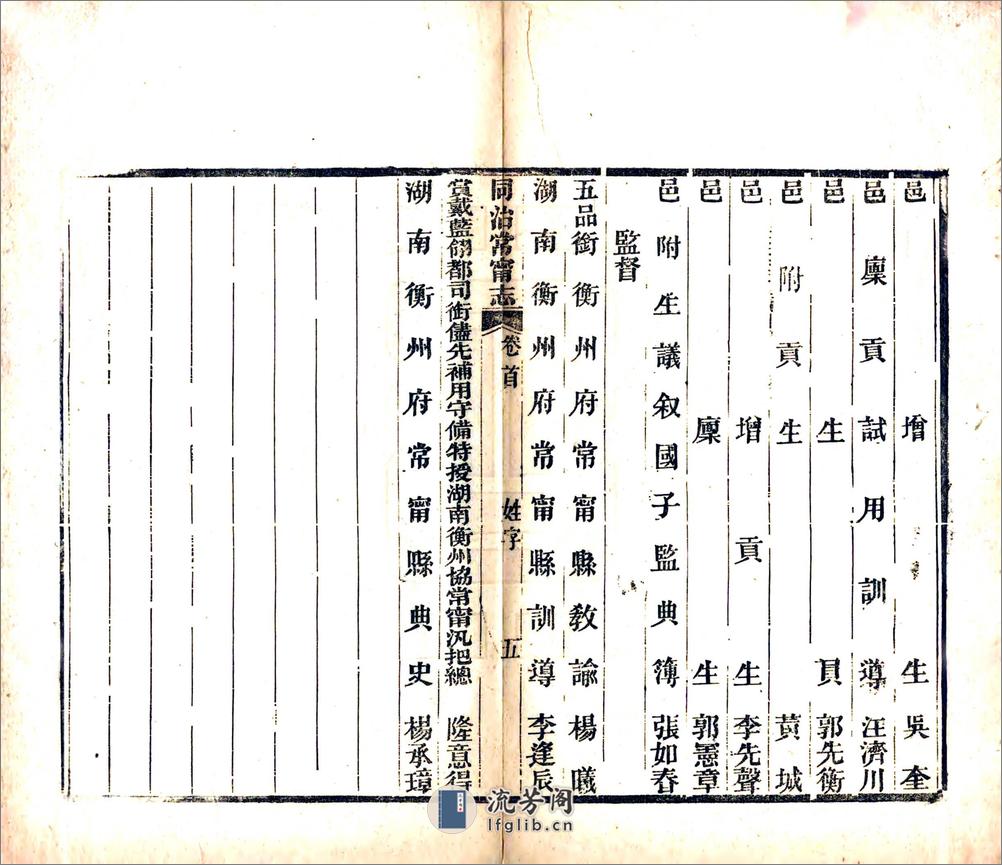 邑增生吳奎
邑廩貢試用訓導汪濟川
邑生員郭先衡
邑附貢生黃城
邑增貢生李先聲
邑廩生郭憲章
邑附生議叙國子監典簿張如春
監督
五品銜衡州府常甯縣教諭楊曦
湖南衡州府常甯縣訓導李逢辰
同治常甯志 卷首 姓字 五
賞戴藍翎都司銜儘先補用守備特授湖南衡州協常甯汛把總隆意得
湖南衡州府常甯縣典史楊承璋
流芳阁
lfglib.cn